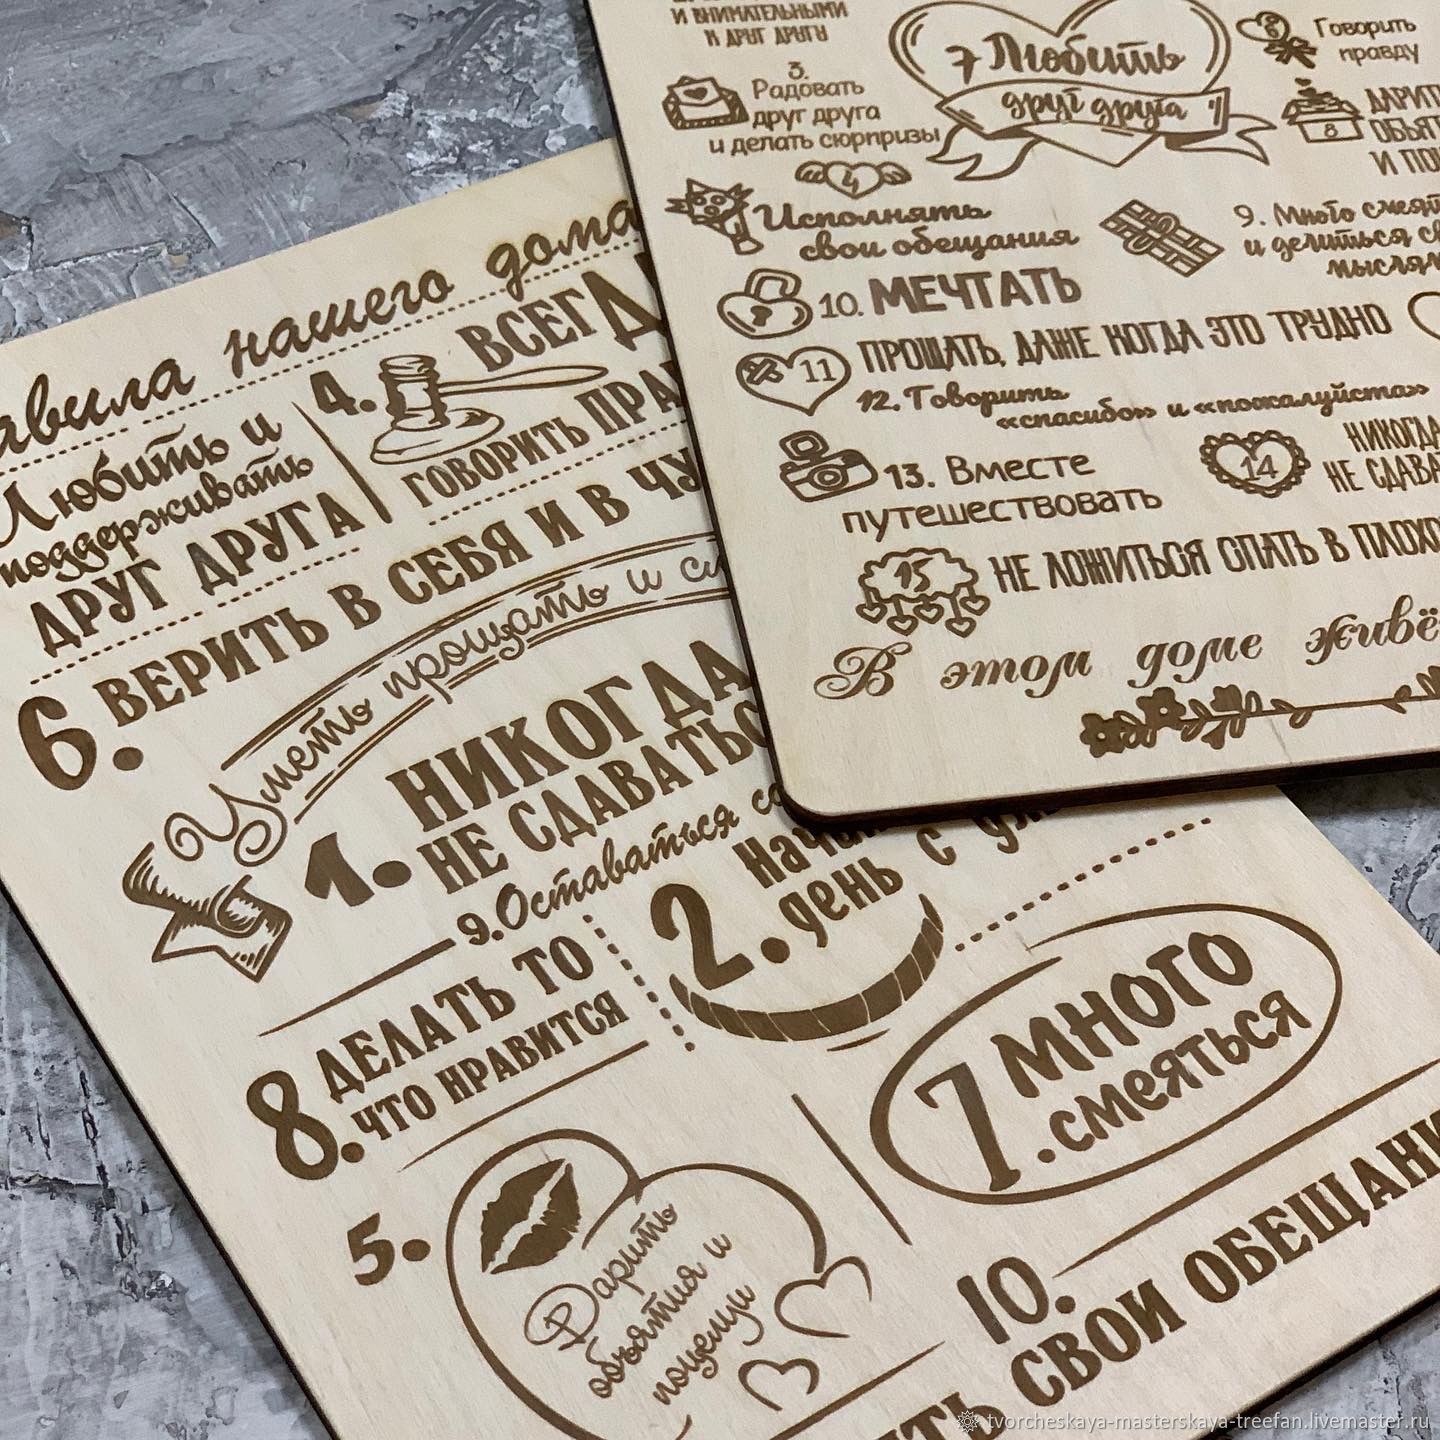 и внимательными
к друг другу
3.
Радовать
друг друга
и делать сюрпризы
7 Любить
друг друга
6
Говорить
правду
8
4
Исполнять
свои обещания
9. Много
и делиться
10. МЕЧТАТЬ
11
ПРОЩАТЬ, ДАЖЕ КОГДА ЭТО ТРУДНО
12. Говорить
«спасибо» и «пожалуйста»
13. Вместе
путешествовать
14
НИКОГДА
15
НЕ ЛОЖИТЬСЯ СПАТЬ В
В этом доме
нашего дома
Любить и
поддерживать
ДРУГ ДРУГА
4.
ГОВОРИТЬ
6. ВЕРИТЬ В СЕБЯ И В
Уметь прощать и
1. НИКОГДА
НЕ СДАВАТЬС
9. Оставаться
2.
день с
8. ДЕЛАТЬ ТО
ЧТО НРАВИТСЯ
7. МНОГО
смеяться
5.
Дарить
объятия и
поцелуи
10.
СВОИ ОБЕЩАНИ
tvorcheskaya-masterskaya-treefan.livemaster.ru